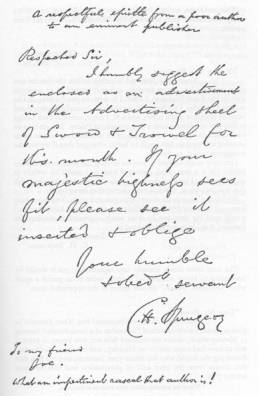 A respectful epistle from a poor author
to an eminent publisher
Respected Sir,
I humbly suggest the
enclosed as an advertisement
in the Advertising sheet
of Sword & Trowel for
this month. If your
majestic highness sees
fit, please see it
inserted & oblige
Your humble
& obedt servant
C. H. Spurgeon
To my friend
Joe.
What an impertinent rascal that author is!